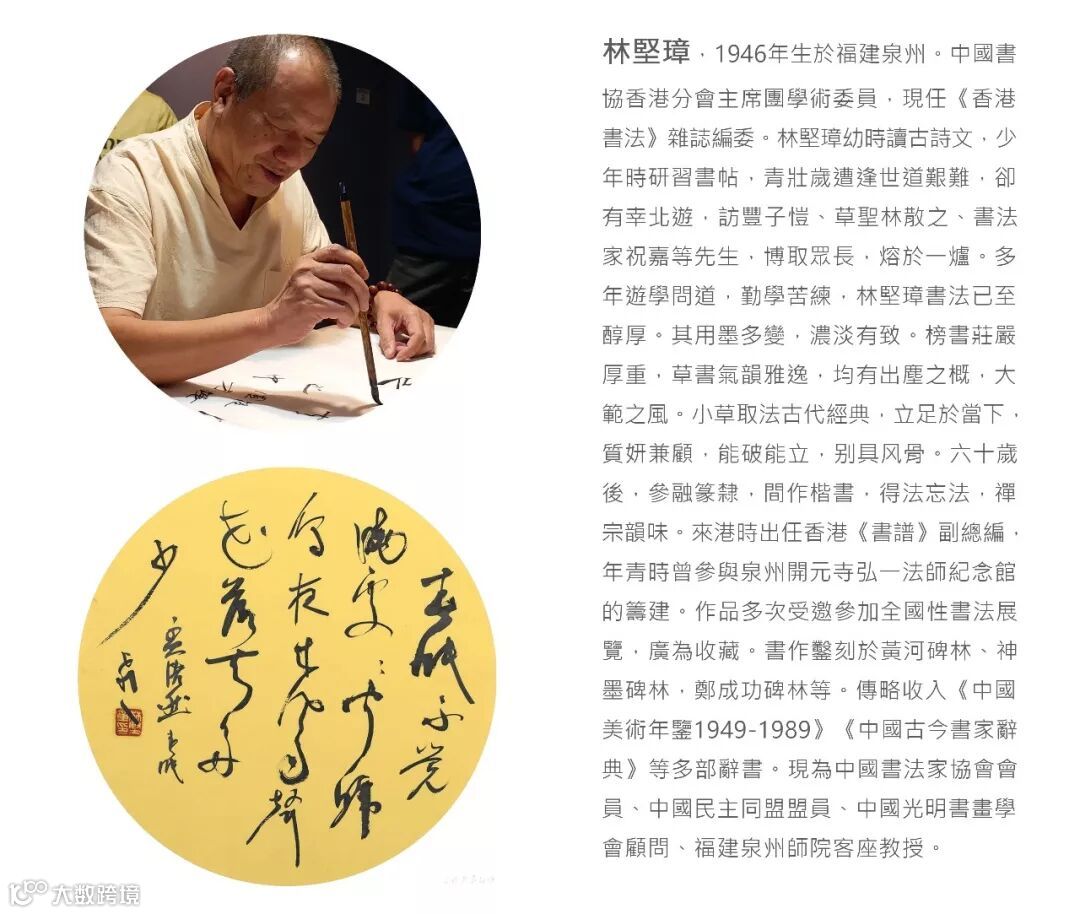 林堅璋，1946年生於福建泉州。中國書
協香港分會主席團學術委員，現任《香港
書法》雜誌編委。林堅璋幼時讀古詩文，少
年時研習書帖，青壯歲遭逢世道艱難，卻
有幸北遊，訪豐子愷、草聖林散之、書法
家祝嘉等先生，博取眾長，熔於一爐。多
年遊學問道，勤學苦練，林堅璋書法已至
醇厚。其用墨多變，濃淡有致。榜書莊嚴
厚重，草書氣韻雅逸，均有出塵之概，大
範之風。小草取法古代經典，立足於當下，
質妍兼顧，能破能立，别具风骨。六十歲
後，參融篆隸，間作楷書，得法忘法，禪
宗韻味。來港時出任香港《書譜》副總編，
年青時曾參與泉州開元寺弘一法師紀念館
的籌建。作品多次受邀參加全國性書法展
覽，廣為收藏。書作鑿刻於黃河碑林、神
墨碑林，鄭成功碑林等。傳略收入《中國
美術年鑒1949-1989》《中國古今書家辭
典》等多部辭書。現為中國書法家協會會
員、中國民主同盟盟員、中國光明書畫學
會顧問、福建泉州師院客座教授。
春眠不覺
曉處〻聞啼
鳥夜来風雨聲
花落知多
少
孟浩然春眠
大数跨境